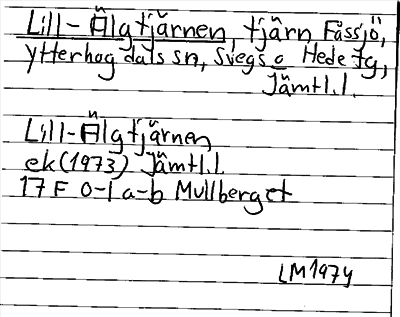 Lill-Älgtjärnen, tjärn Fåssjö,
Ytterhogdals sn, Svegs o Hede tg,
Jämtl.l.
Lill-Älgtjärnen
ek (1973) Jämtl.l.
17 F 0-1 a-b Mullberget
LM 1974